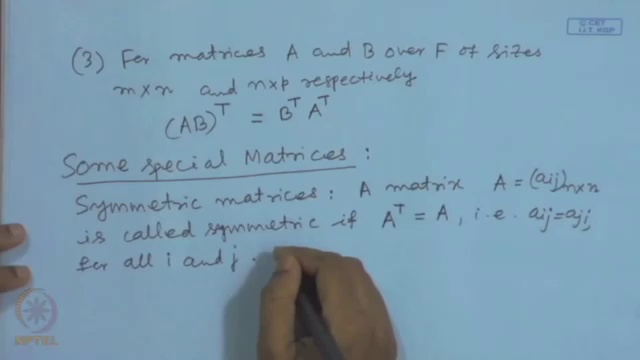 © CET
I.I.T. KGP
(3) For matrices A and B over F of sizes
m×n and n×p respectively
(AB)^T = B^T A^T
Some special Matrices :
Symmetric matrices : A matrix A = (aij)n×n
is called symmetric if A^T = A, i.e. aij = ajj,
for all i and j.
NPTEL